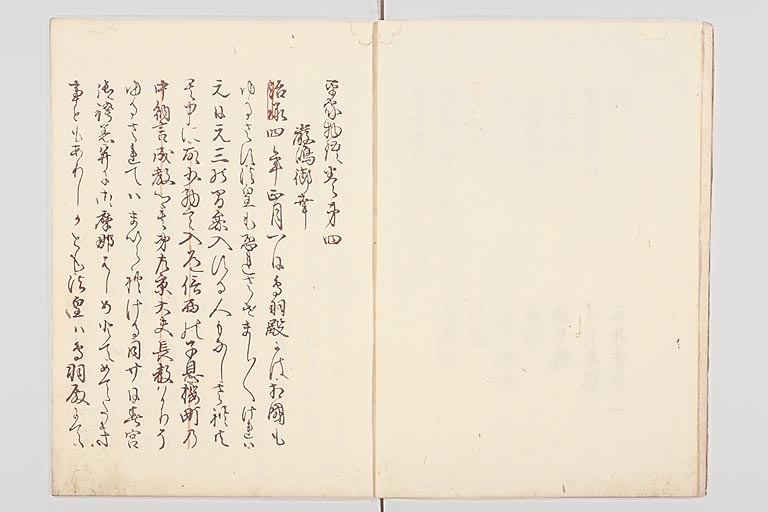 平家物語巻第四
厳嶋御幸
治承四年正月一日鳥羽殿には相國も
ゆるさす法皇も恐れさせましゝけれは
元日元三の間参入する人もなしされ共
其中に故少納言入道信西の子息桜町の
中納言成範卿其弟左京大夫長教はかりそ
ゆるされてはまいられける同廿日春宮
御袴着并に御摩那はしめとてめてたき
事ともありしかとも法皇は鳥羽殿にて